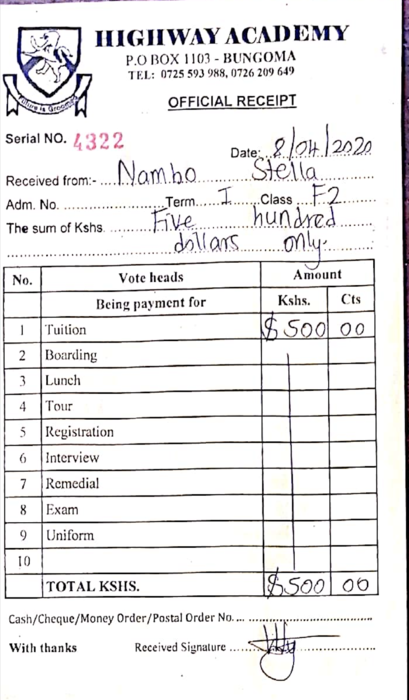 HIGHWAY ACADEMY
P.O BOX 1103 - BUNGOMA
TEL: 0725 593 988, 0726 209 649
OFFICIAL RECEIPT
Serial NO. 4322
Date: 8/04/2020
Received from:- Nambo Stella
Adm. No. Term I Class F2
The sum of Kshs. Five hundred
dollars only.
No. Vote heads Amount
Being payment for Kshs. Cts
1 Tuition $500 00
2 Boarding
3 Lunch
4 Tour
5 Registration
6 Interview
7 Remedial
8 Exam
9 Uniform
10
TOTAL KSHS. $500 00
Cash/Cheque/Money Order/Postal Order No.
With thanks Received Signature